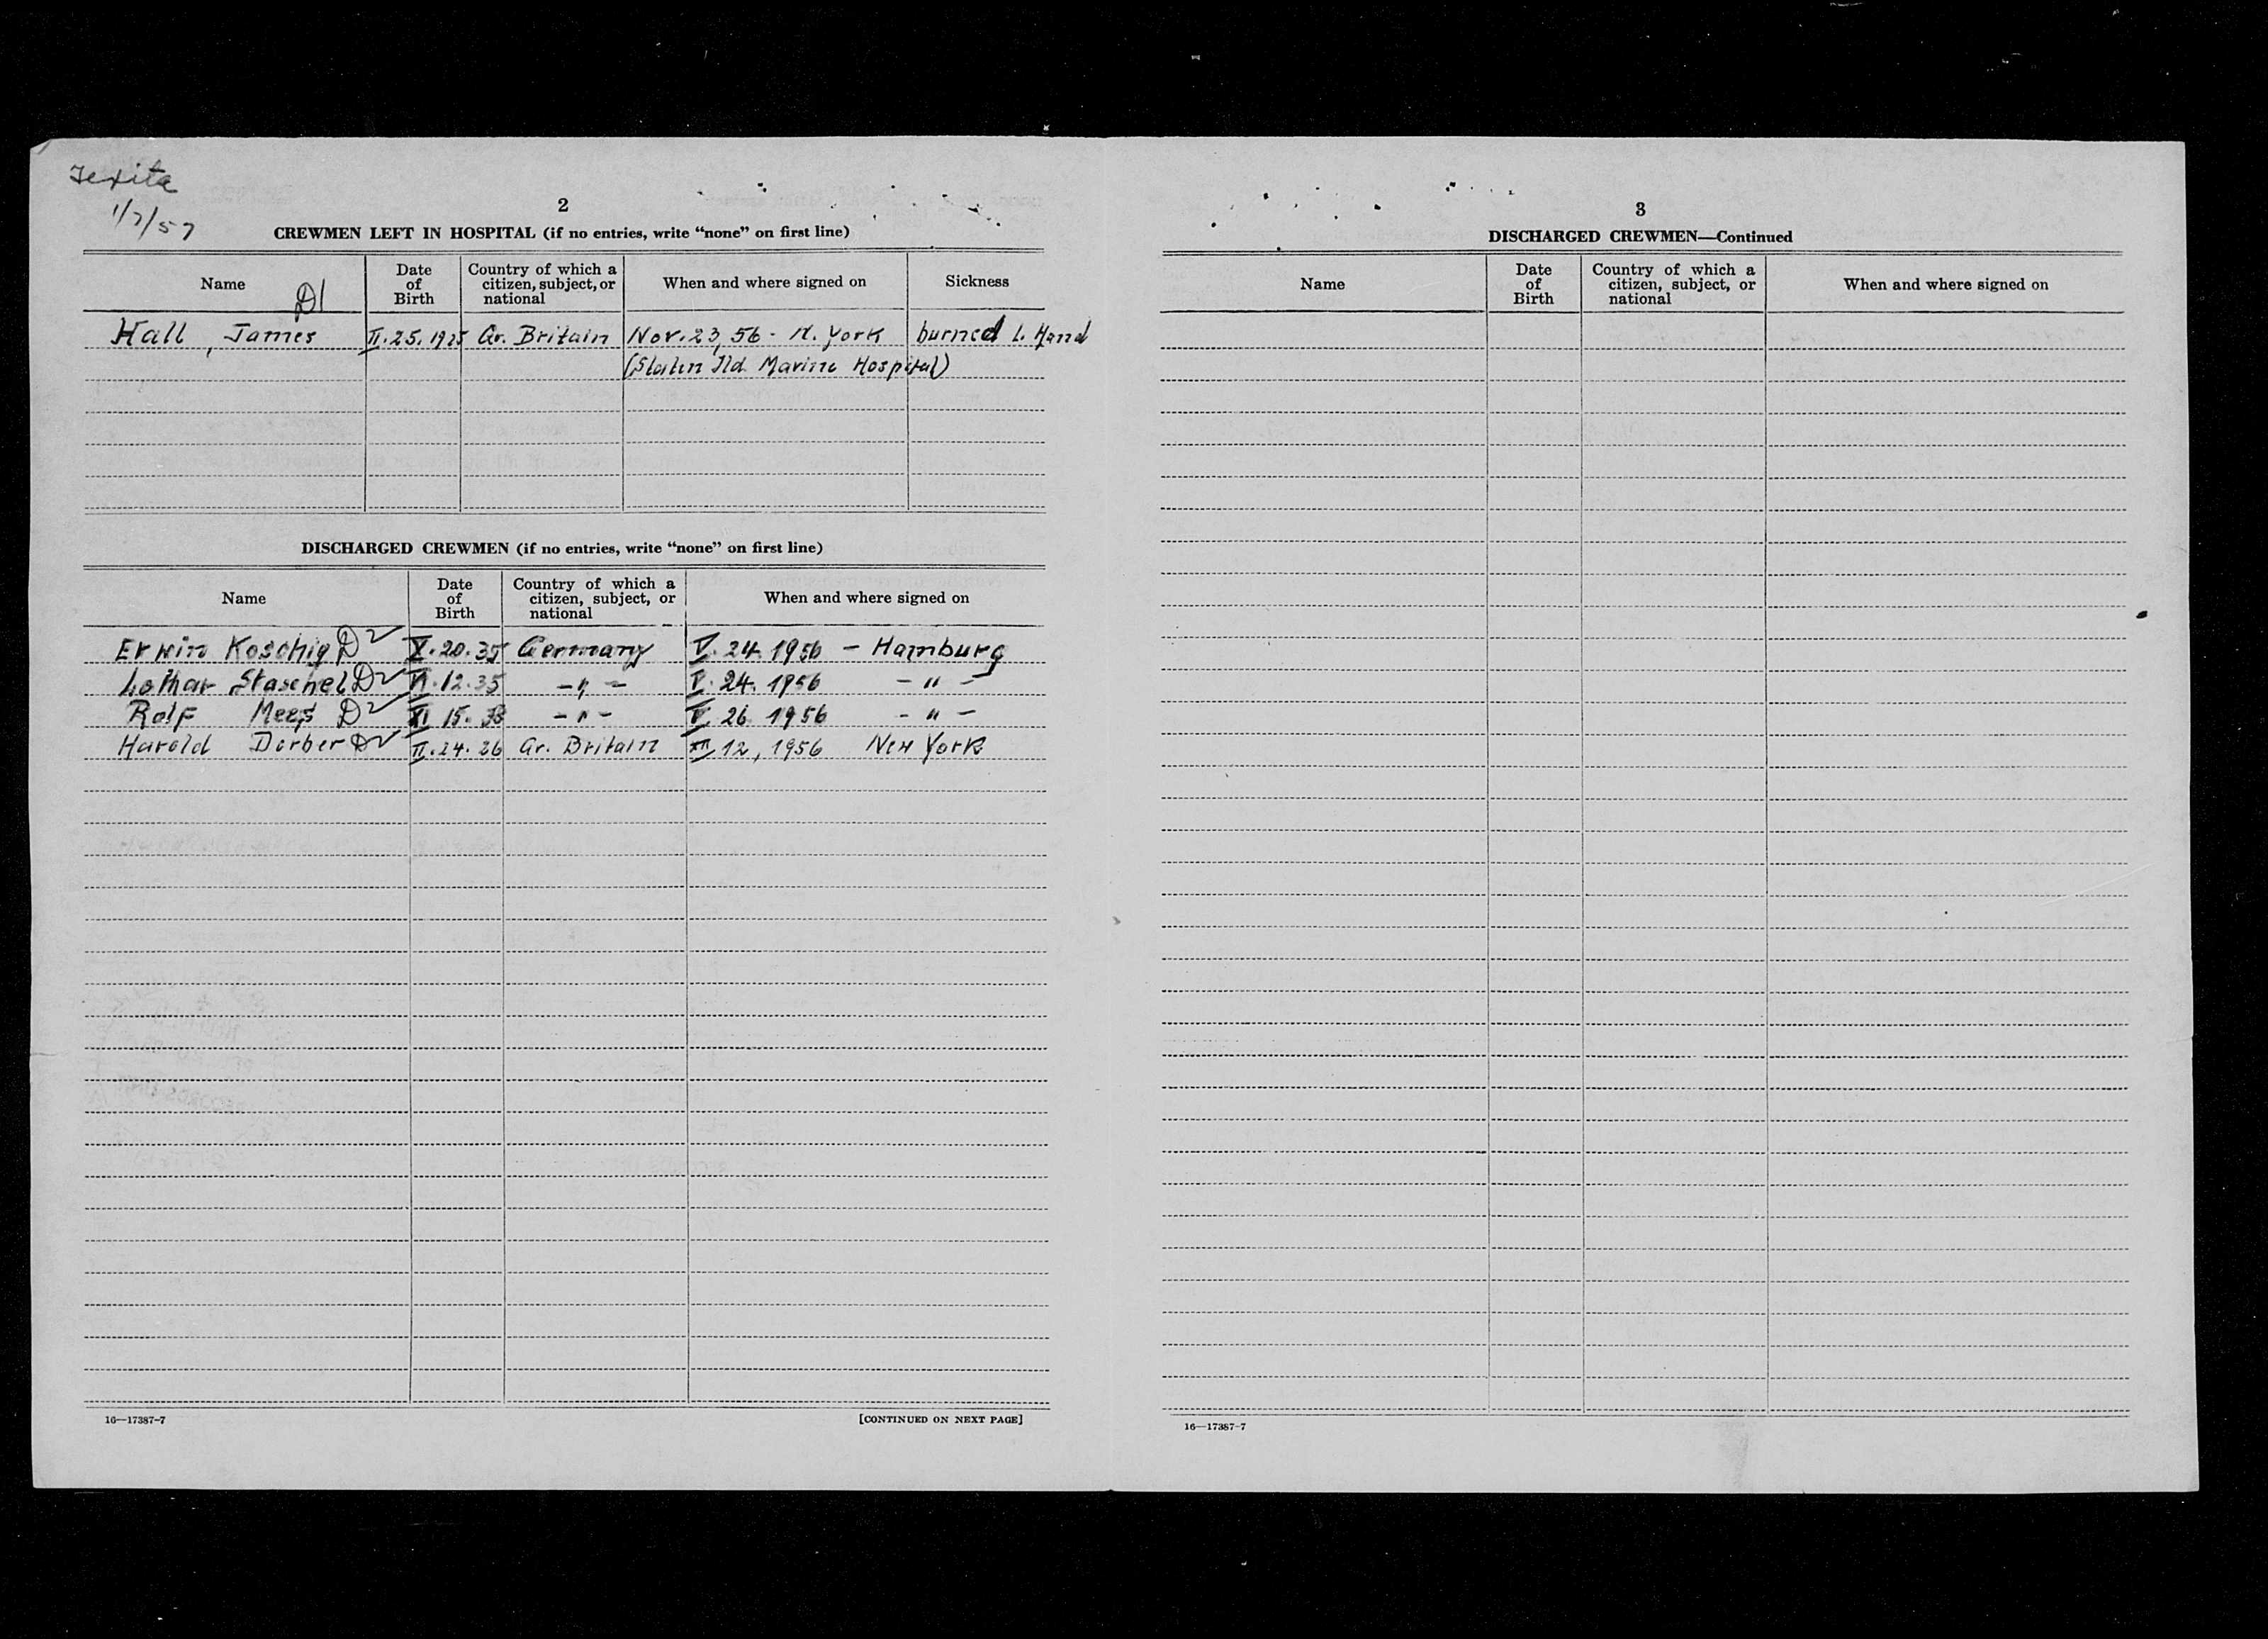 Texita
1/7/57
2
CREWMEN LEFT IN HOSPITAL (if no entries, write "none" on first line)
Name D1 Date of Birth Country of which a citizen, subject, or national When and where signed on Sickness
Hall, James II.25.1925 Gr. Britain Nov. 23, 56 - N. York burned L. Hand
(Staten Ild. Marine Hospital)
DISCHARGED CREWMEN (if no entries, write "none" on first line)
Name Date of Birth Country of which a citizen, subject, or national When and where signed on
Erwin Koschig D2 X.20.35 Germany V.24.1956 - Hamburg
Lothar Staschel D2 VI.12.35 -"- V.24.1956 -"-
Rolf Mees D2 XI 15. -"- V 26 1956 -"-
Harold Dorber D2 II.24.26 Gr. Britain XII 12, 1956 New York
16—17387-7 [CONTINUED ON NEXT PAGE]
3
DISCHARGED CREWMEN—Continued
Name Date of Birth Country of which a citizen, subject, or national When and where signed on
16—17387-7